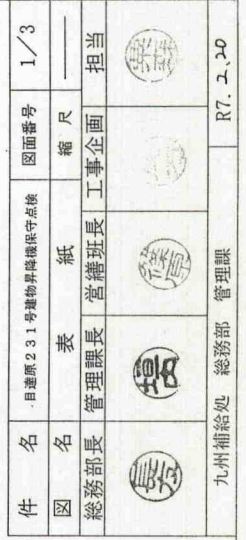 件 名 目達原231号建物昇降機保守点検 図面番号 1/3
図 名 表 紙 縮 尺 ——
総務部長 管理課長 営繕班長 工事企画 担当
九州補給処 総務部 管理課 R7.2.20